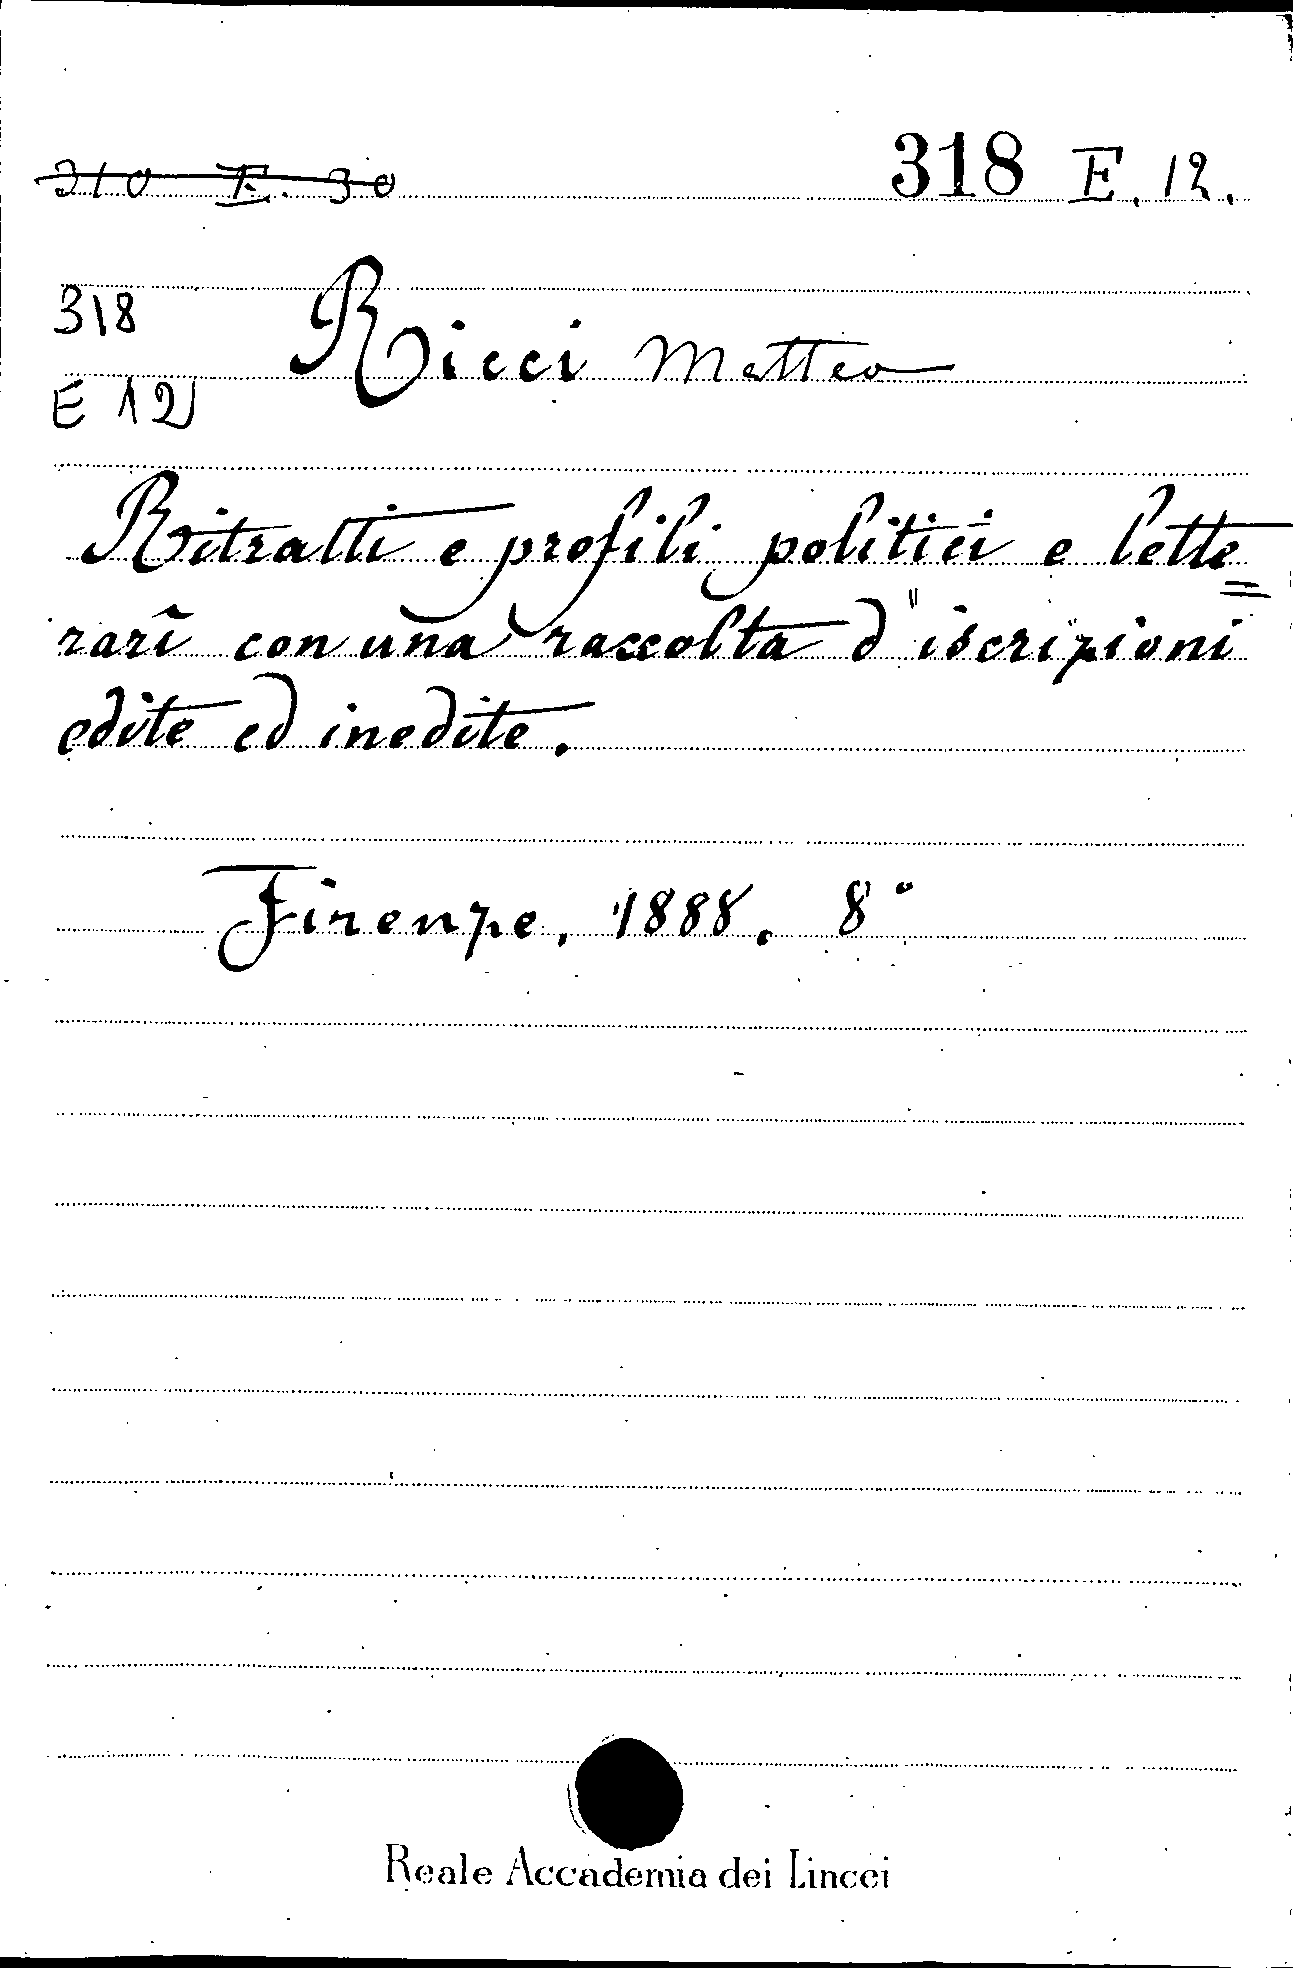 310 E. 30
318 E. 12.
318
Ricci Matteo
E 12
Ritratti e profili politici e lette=
rarî con una raccolta d'iscrizioni
edite ed inedite.
Firenze, 1888. 8°
Reale Accademia dei Lincei